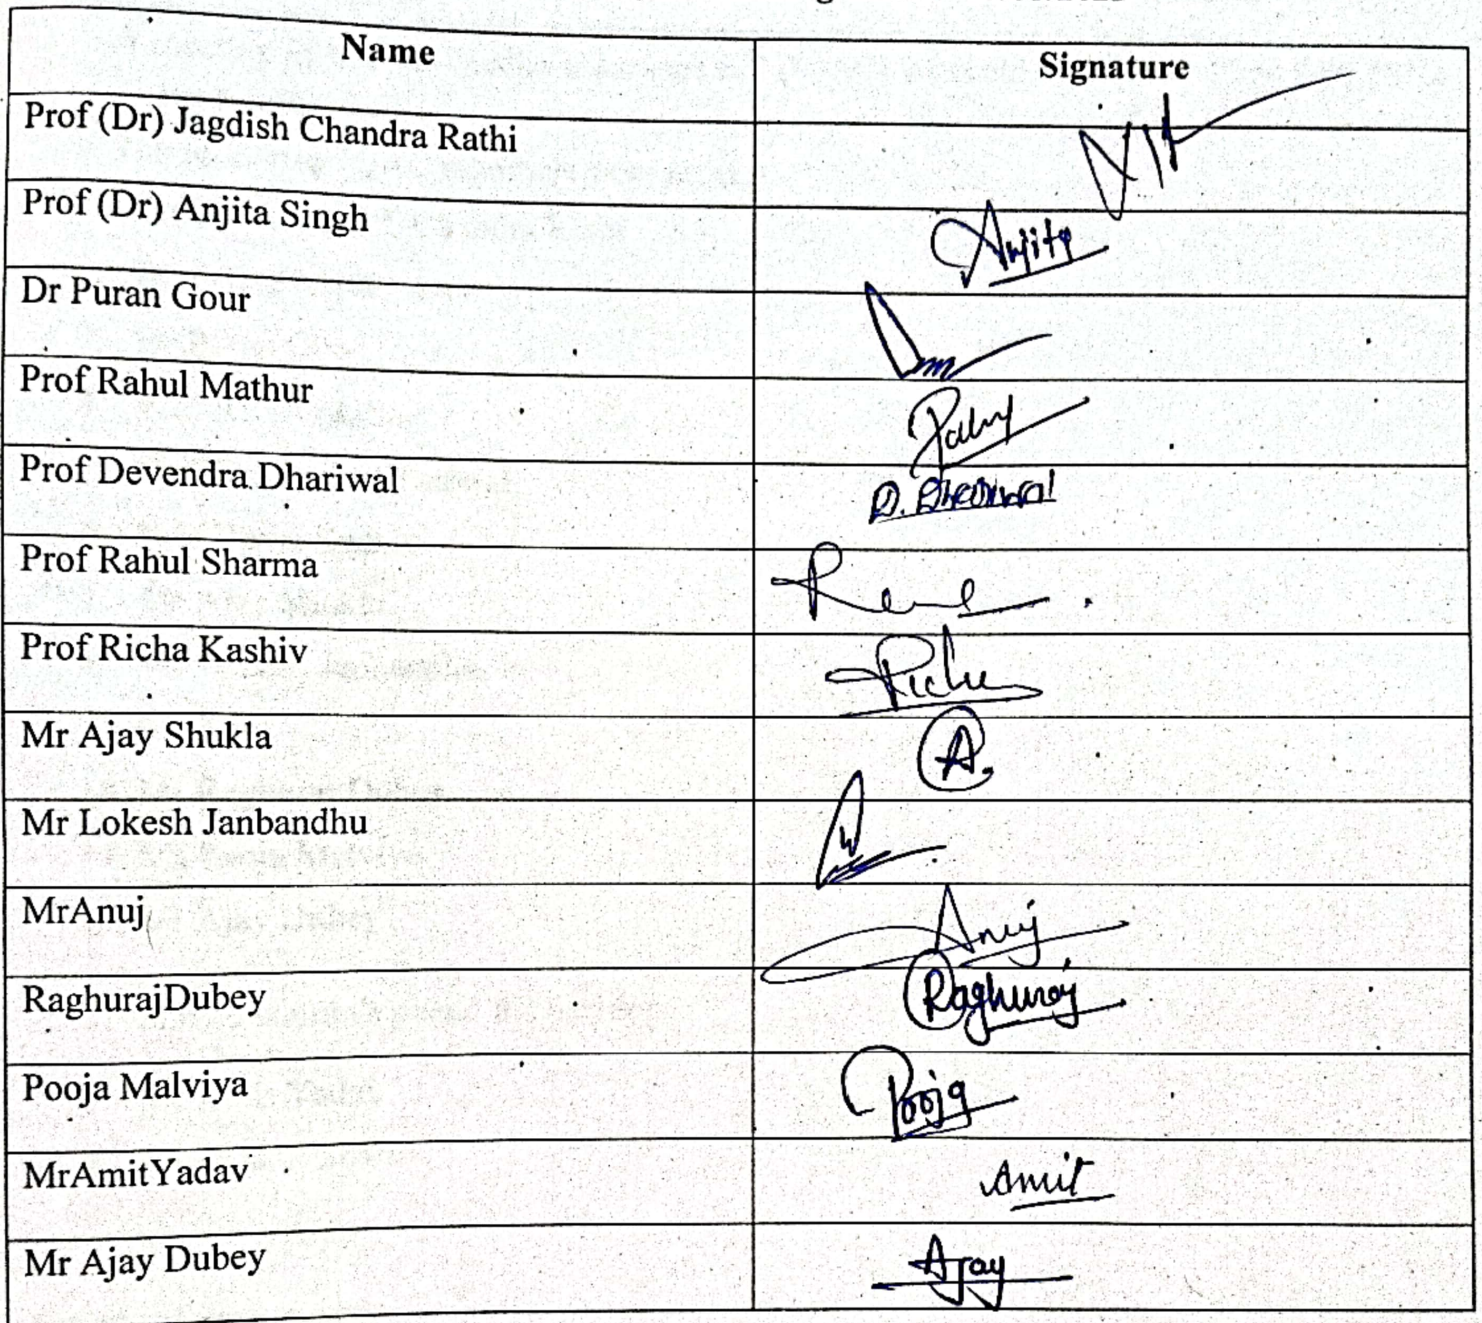 Name Signature
Prof (Dr) Jagdish Chandra Rathi
Prof (Dr) Anjita Singh Anjita
Dr Puran Gour
Prof Rahul Mathur
Prof Devendra Dhariwal D. Dhariwal
Prof Rahul Sharma
Prof Richa Kashiv Richa
Mr Ajay Shukla A.
Mr Lokesh Janbandhu
MrAnuj Anuj
RaghurajDubey Raghuraj
Pooja Malviya Pooja
MrAmitYadav Amit
Mr Ajay Dubey Ajay